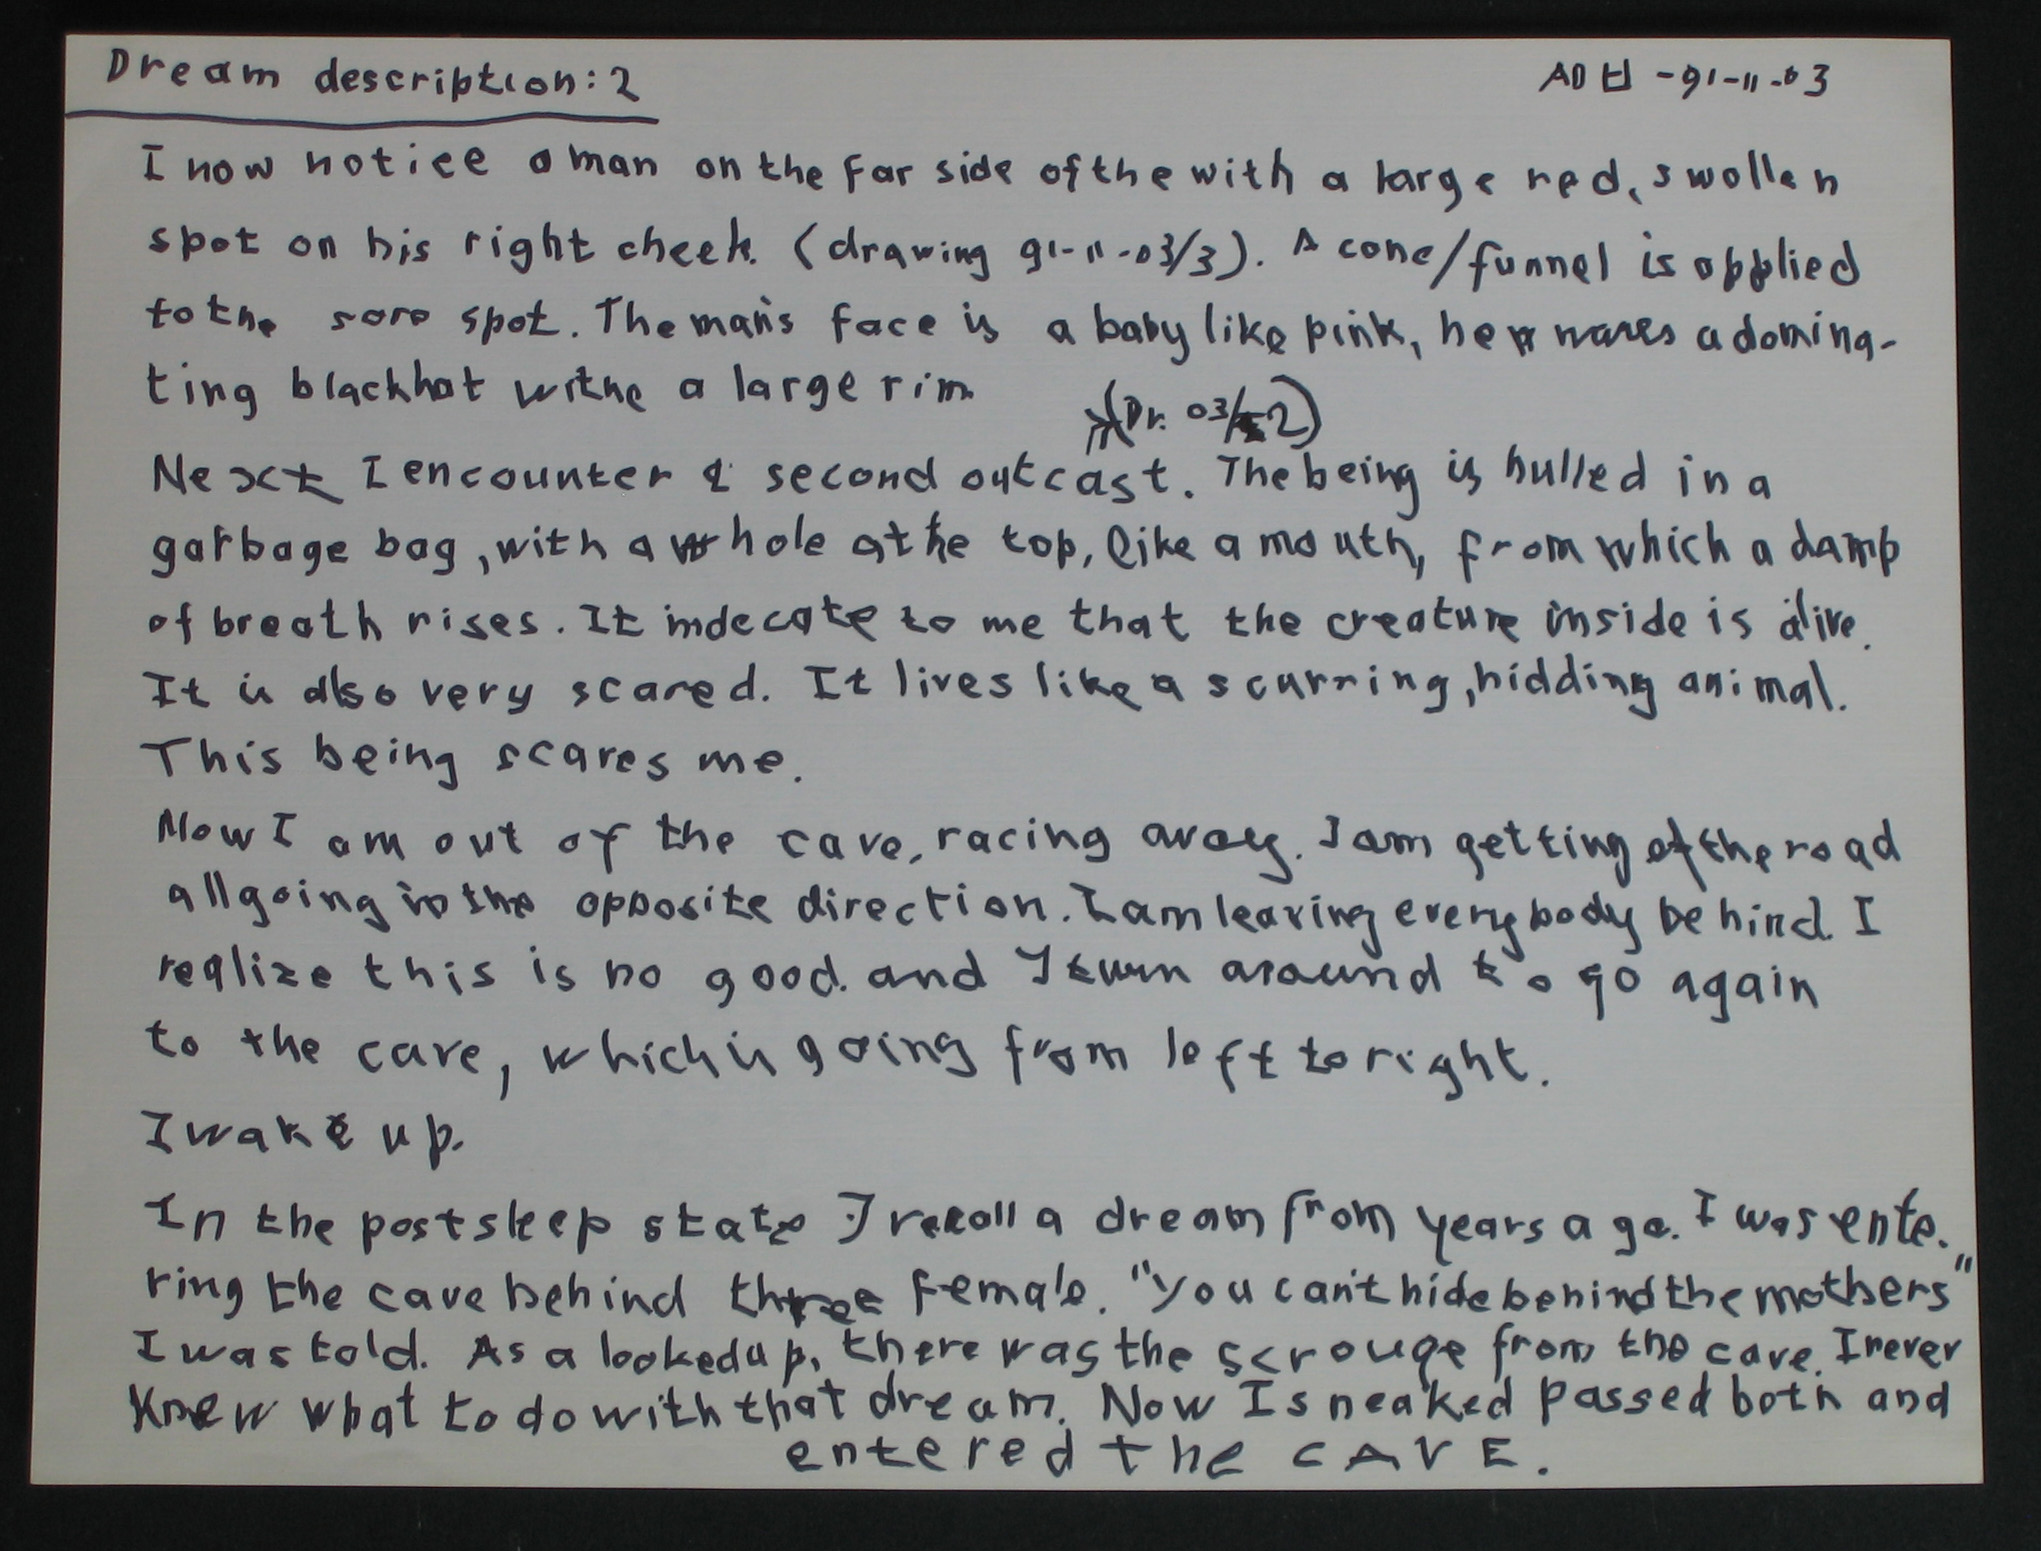 Dream description: 2
AD -91-11-03
I now notice a man on the far side of the with a large red, swollen
spot on his right cheek. (drawing 91-11-03/3). A cone/funnel is applied
to the sore spot. The man's face is a baby like pink, he wares a domina-
ting black hat withe a large rim
(Dr. 03/2)
Next I encounter a second outcast. The being is hulled in a
garbage bag, with a hole at the top, like a mouth, from which a damp
of breath rises. It indecate to me that the creature inside is alive.
It is also very scared. It lives like a scurring, hidding animal.
This being scares me.
Now I am out of the cave, racing away. I am getting of the road
all going in the opposite direction. I am leaving everybody behind. I
realize this is no good. and I turn around to go again
to the cave, which is going from left to right.
I wake up.
In the postsleep state I recall a dream from years ago. I was ente-
ring the cave behind three female. "You can't hide behind the mothers"
I was told. As a looked up, there was the scrouge from the cave. I never
knew what to do with that dream. Now I sneaked passed both and
entered the CAVE.